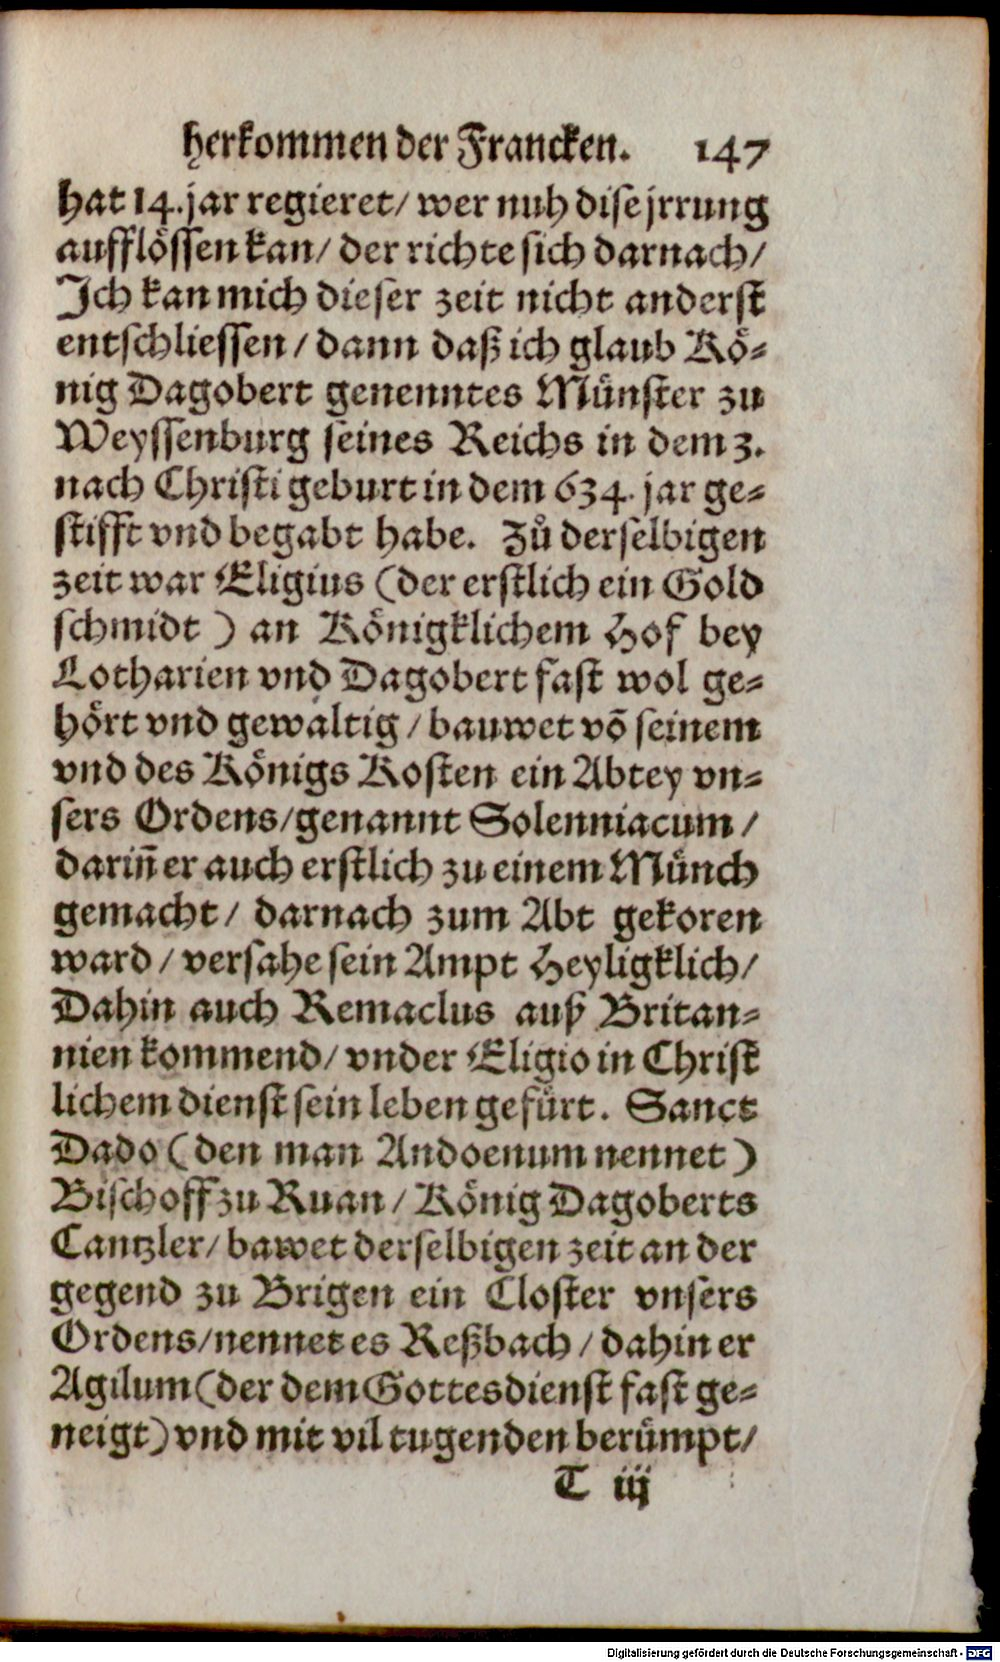 herkommen der Francken. 147
hat 14. jar regieret/ wer nuh dise jrrung
aufflössen kan/ der richte sich darnach/
Jch kan mich dieser zeit nicht anderst
entschliessen/ dann daß ich glaub Kö-
nig Dagobert genenntes Münster zu
Weyssenburg seines Reichs in dem 3.
nach Christi geburt in dem 634. jar ge-
stifft vnd begabt habe. Zů derselbigen
zeit war Eligius (der erstlich ein Gold
schmidt) an Königklichem Hof bey
Lotharien vnd Dagobert fast wol ge-
hört vnd gewaltig/ bauwet võ seinem
vnd des Königs Kosten ein Abtey vn-
sers Ordens/ genannt Solenniacum/
dariñ er auch erstlich zu einem Münch
gemacht/ darnach zum Abt gekoren
ward/ versahe sein Ampt Heyligklich/
Dahin auch Remaclus auß Britan-
nien kommend/ vnder Eligio in Christ
lichem dienst sein leben gefürt. Sanct
Dado (den man Andoenum nennet)
Bischoff zu Ruan/ König Dagoberts
Cantzler/ bawet derselbigen zeit an der
gegend zu Brigen ein Closter vnsers
Ordens/ nennet es Reßbach/ dahin er
Agilum (der dem Gottesdienst fast ge-
neigt) vnd mit vil tugenden berümpt/
T iij
Digitalisierung gefördert durch die Deutsche Forschungsgemeinschaft - DFG